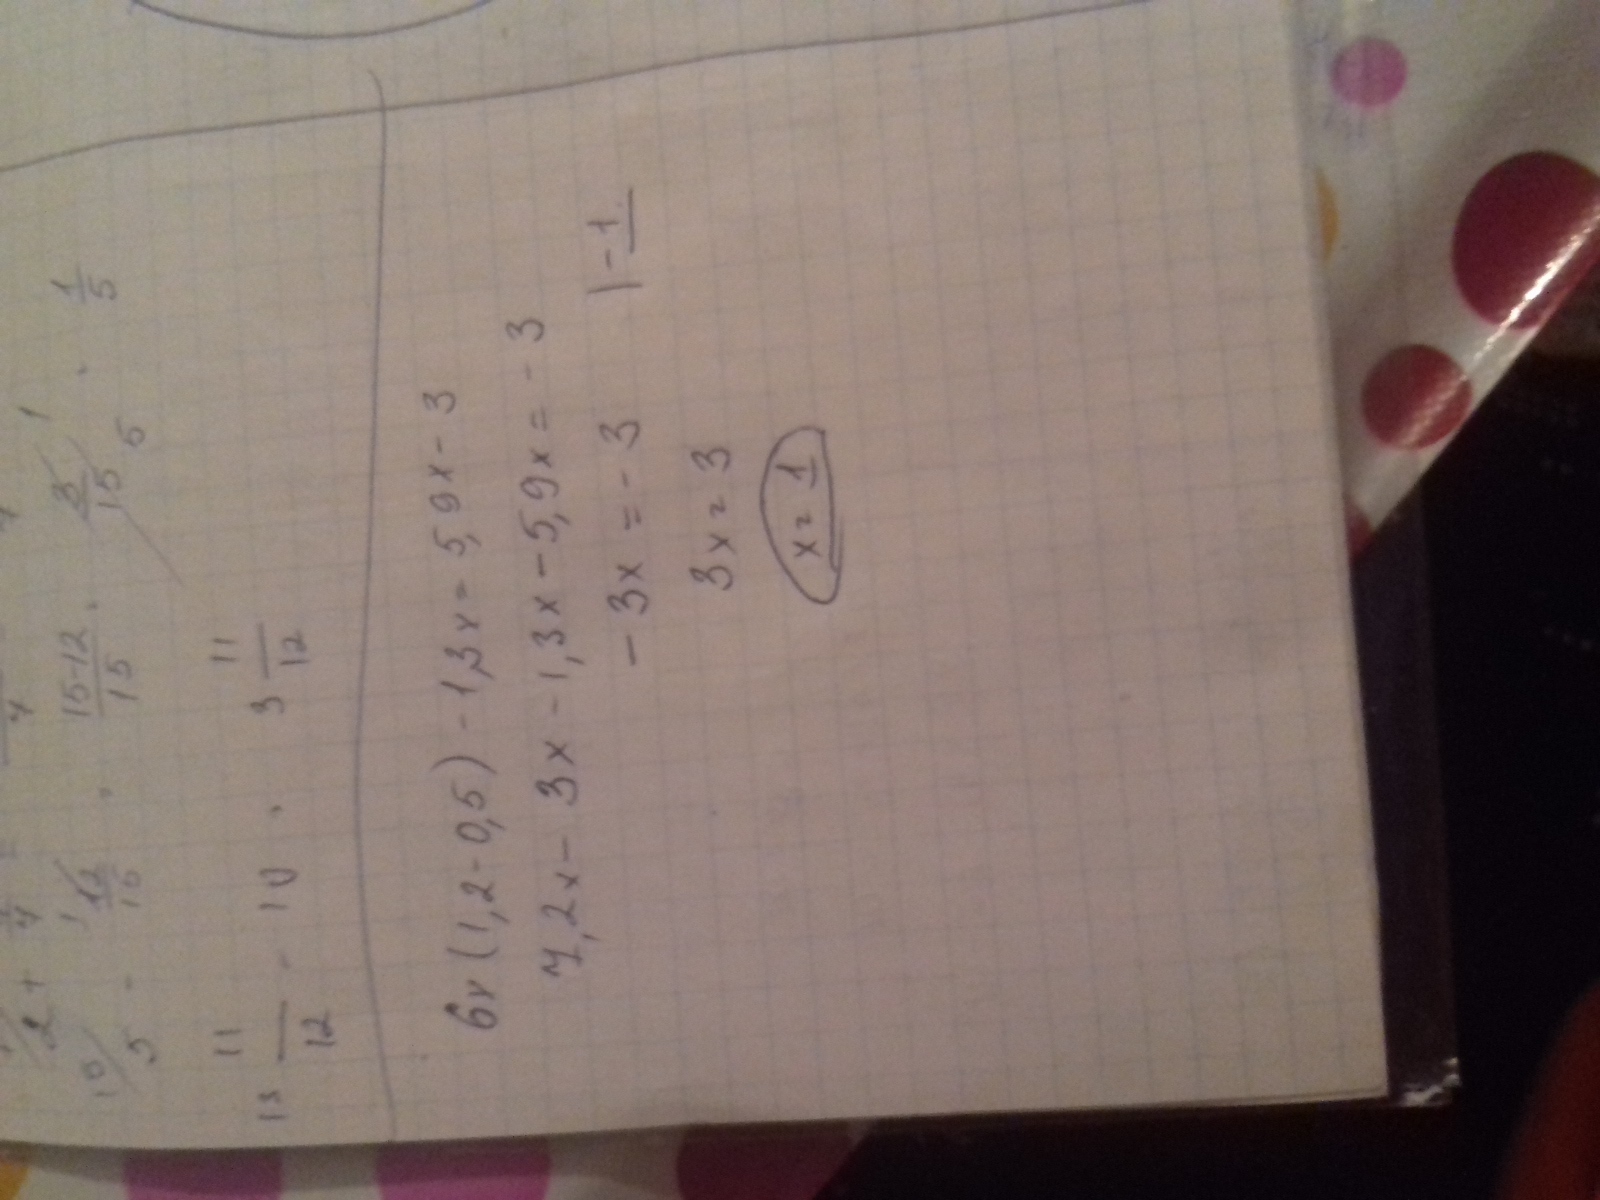 15-12/15 · 3/15 · 1/5
13 11/12 - 10 · 3 11/12
6x(1,2-0,5)-1,3x=5,9x-3
7,2x-3x-1,3x-5,9x=-3
-3x=-3 |-1
3x=3
x=1